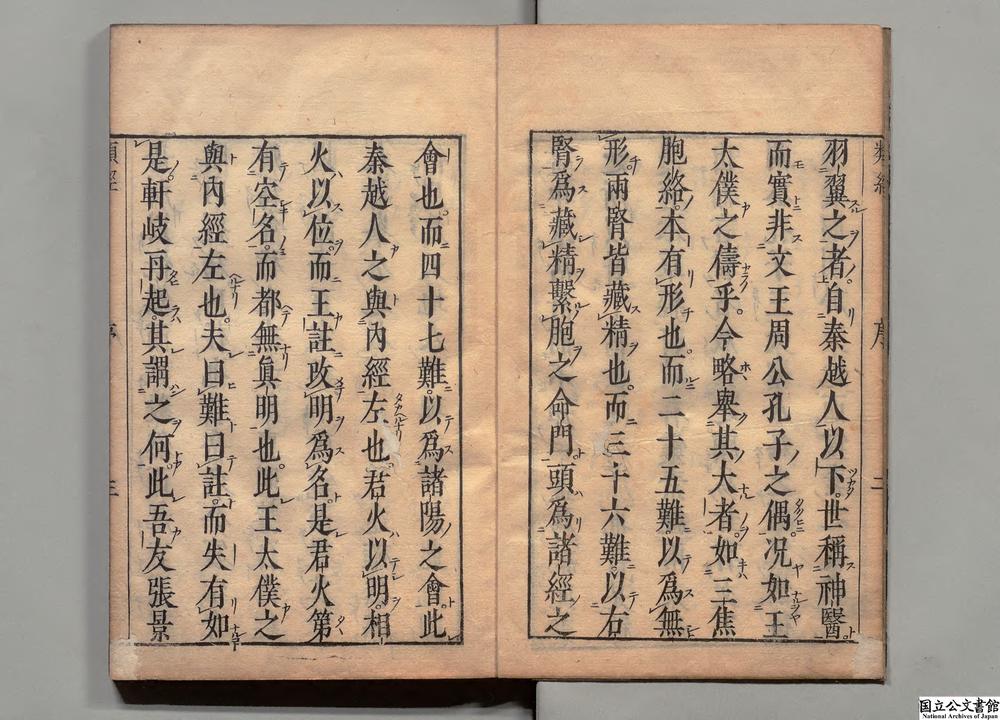 羽翼之者自秦越人以下世稱神醫
而實非文王周公孔子之偶況如王
太僕之儔乎今略舉其大者如三焦
胞絡本有形也而二十五難以爲無
形兩腎皆藏精也而三十六難以右
腎爲藏精繫胞之命門頭爲諸經之
會也而四十七難以爲諸陽之會此
秦越人之與內經左也君火以明相
火以位而王註改明爲名是君火第
有空名而都無眞明也此王太僕之
與內經左也夫曰難曰註而失有如
是軒岐再起其謂之何此吾友張景
類經
序
二
類經
序
三
国立公文書館
National Archives of Japan